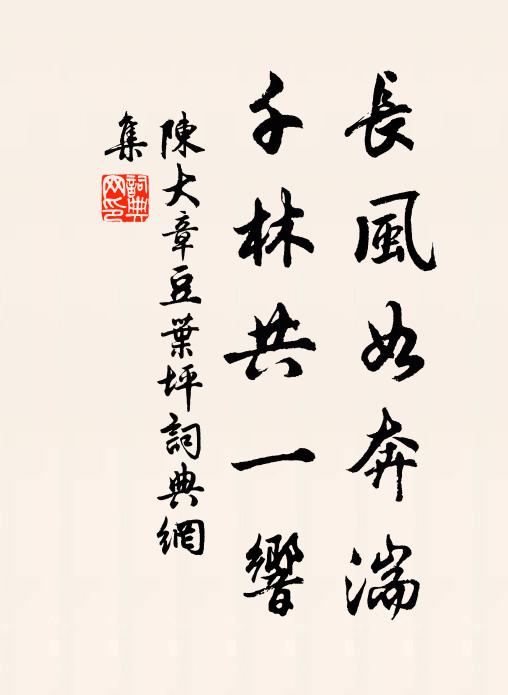 長風如奔湍
千林共一響
陳大章豆葉坪詞典網
集
詞典
網印